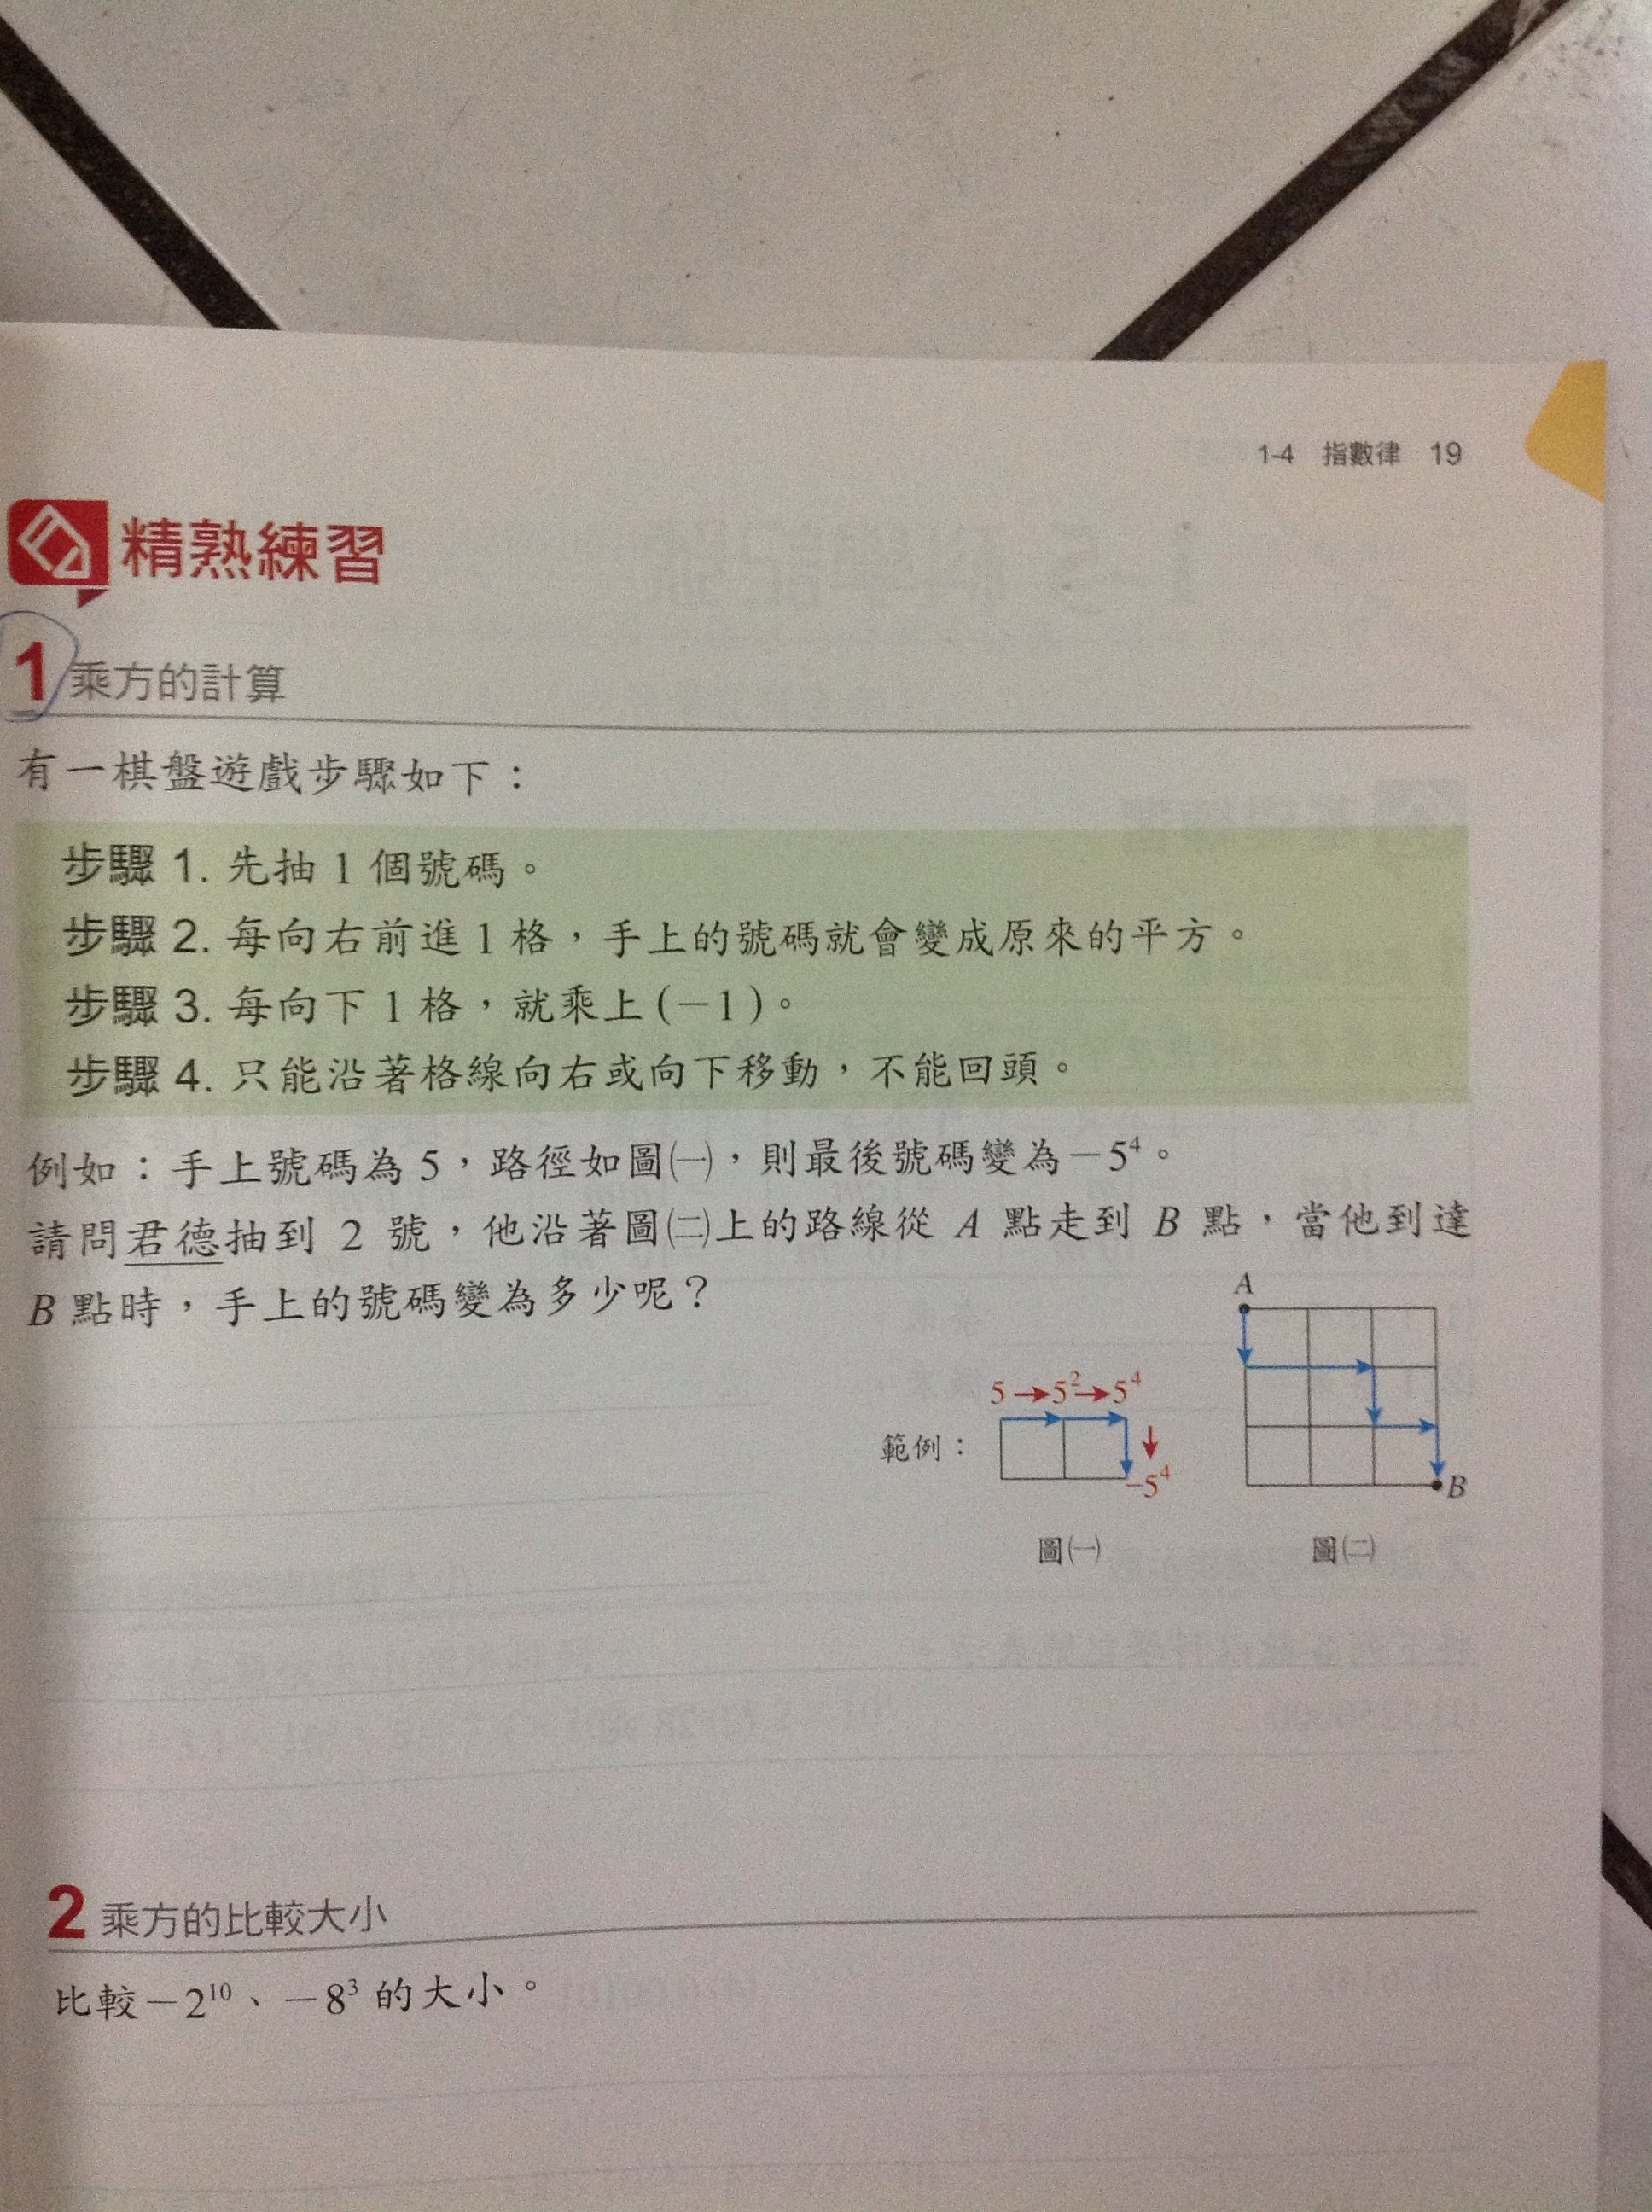 1-4 指數律 19
精熟練習
1 乘方的計算
有一棋盤遊戲步驟如下：
步驟 1. 先抽 1 個號碼。
步驟 2. 每向右前進 1 格，手上的號碼就會變成原來的平方。
步驟 3. 每向下 1 格，就乘上(－1)。
步驟 4. 只能沿著格線向右或向下移動，不能回頭。
例如：手上號碼為 5，路徑如圖㈠，則最後號碼變為－5⁴。
請問君德抽到 2 號，他沿著圖㈡上的路線從 A 點走到 B 點，當他到達
B 點時，手上的號碼變為多少呢？
A
5→5²→5⁴
範例：
－5⁴
B
圖㈠
圖㈡
2 乘方的比較大小
比較－2¹⁰、－8³ 的大小。